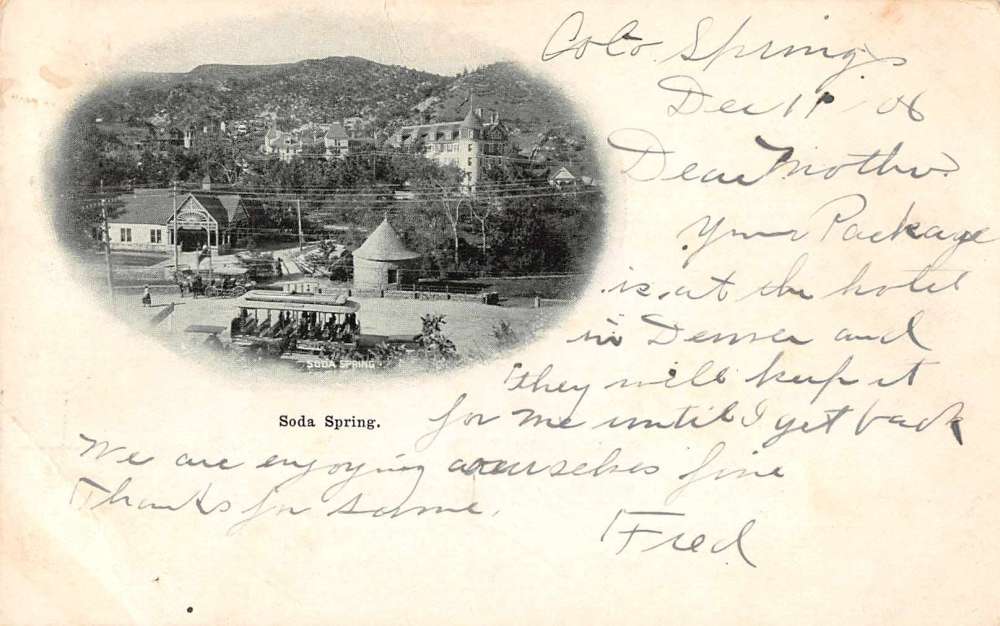 Colo. Springs
Dec 11 06
Dear Mother.
Your Package
is at the hotel
in Denver and
they will keep it
for me until I get back
We are enjoying ourselves fine
Thanks for same.
Fred
SODA SPRING
Soda Spring.